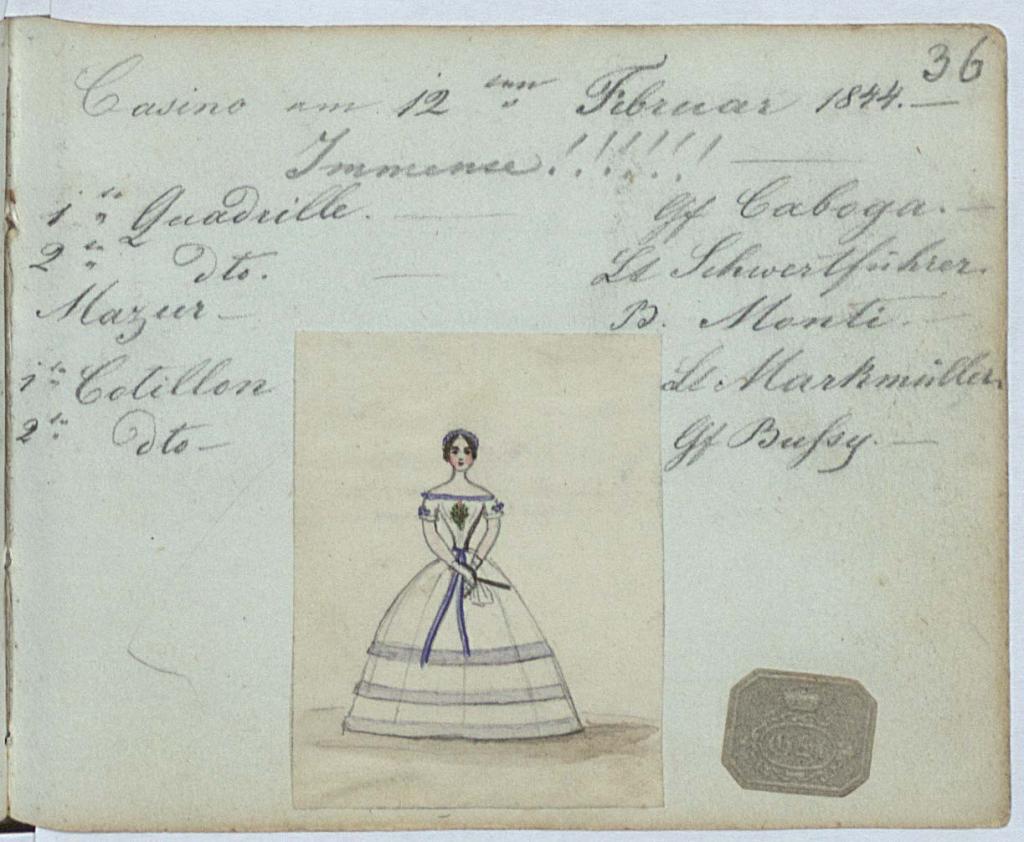 36
Casino am 12ten Februar 1844. —
Immense!!!!!! —
1te Quadrille. — Gf Caboga. —
2te dto. — Lt Schwertführer.
Mazur — B. Monti. —
1te Cotillon Lt Markmüller.
2te dto — Gf Bußy. —